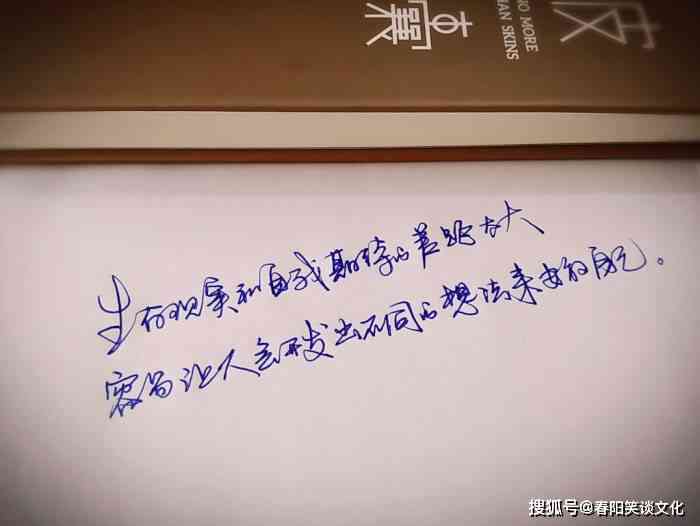 囊
皮
NO MORE
HUMAN SKINS
生存现实和自我期待的差距太大
容易让人会开发出不同的想法来安放自己。
搜狐号@春阳笑谈文化